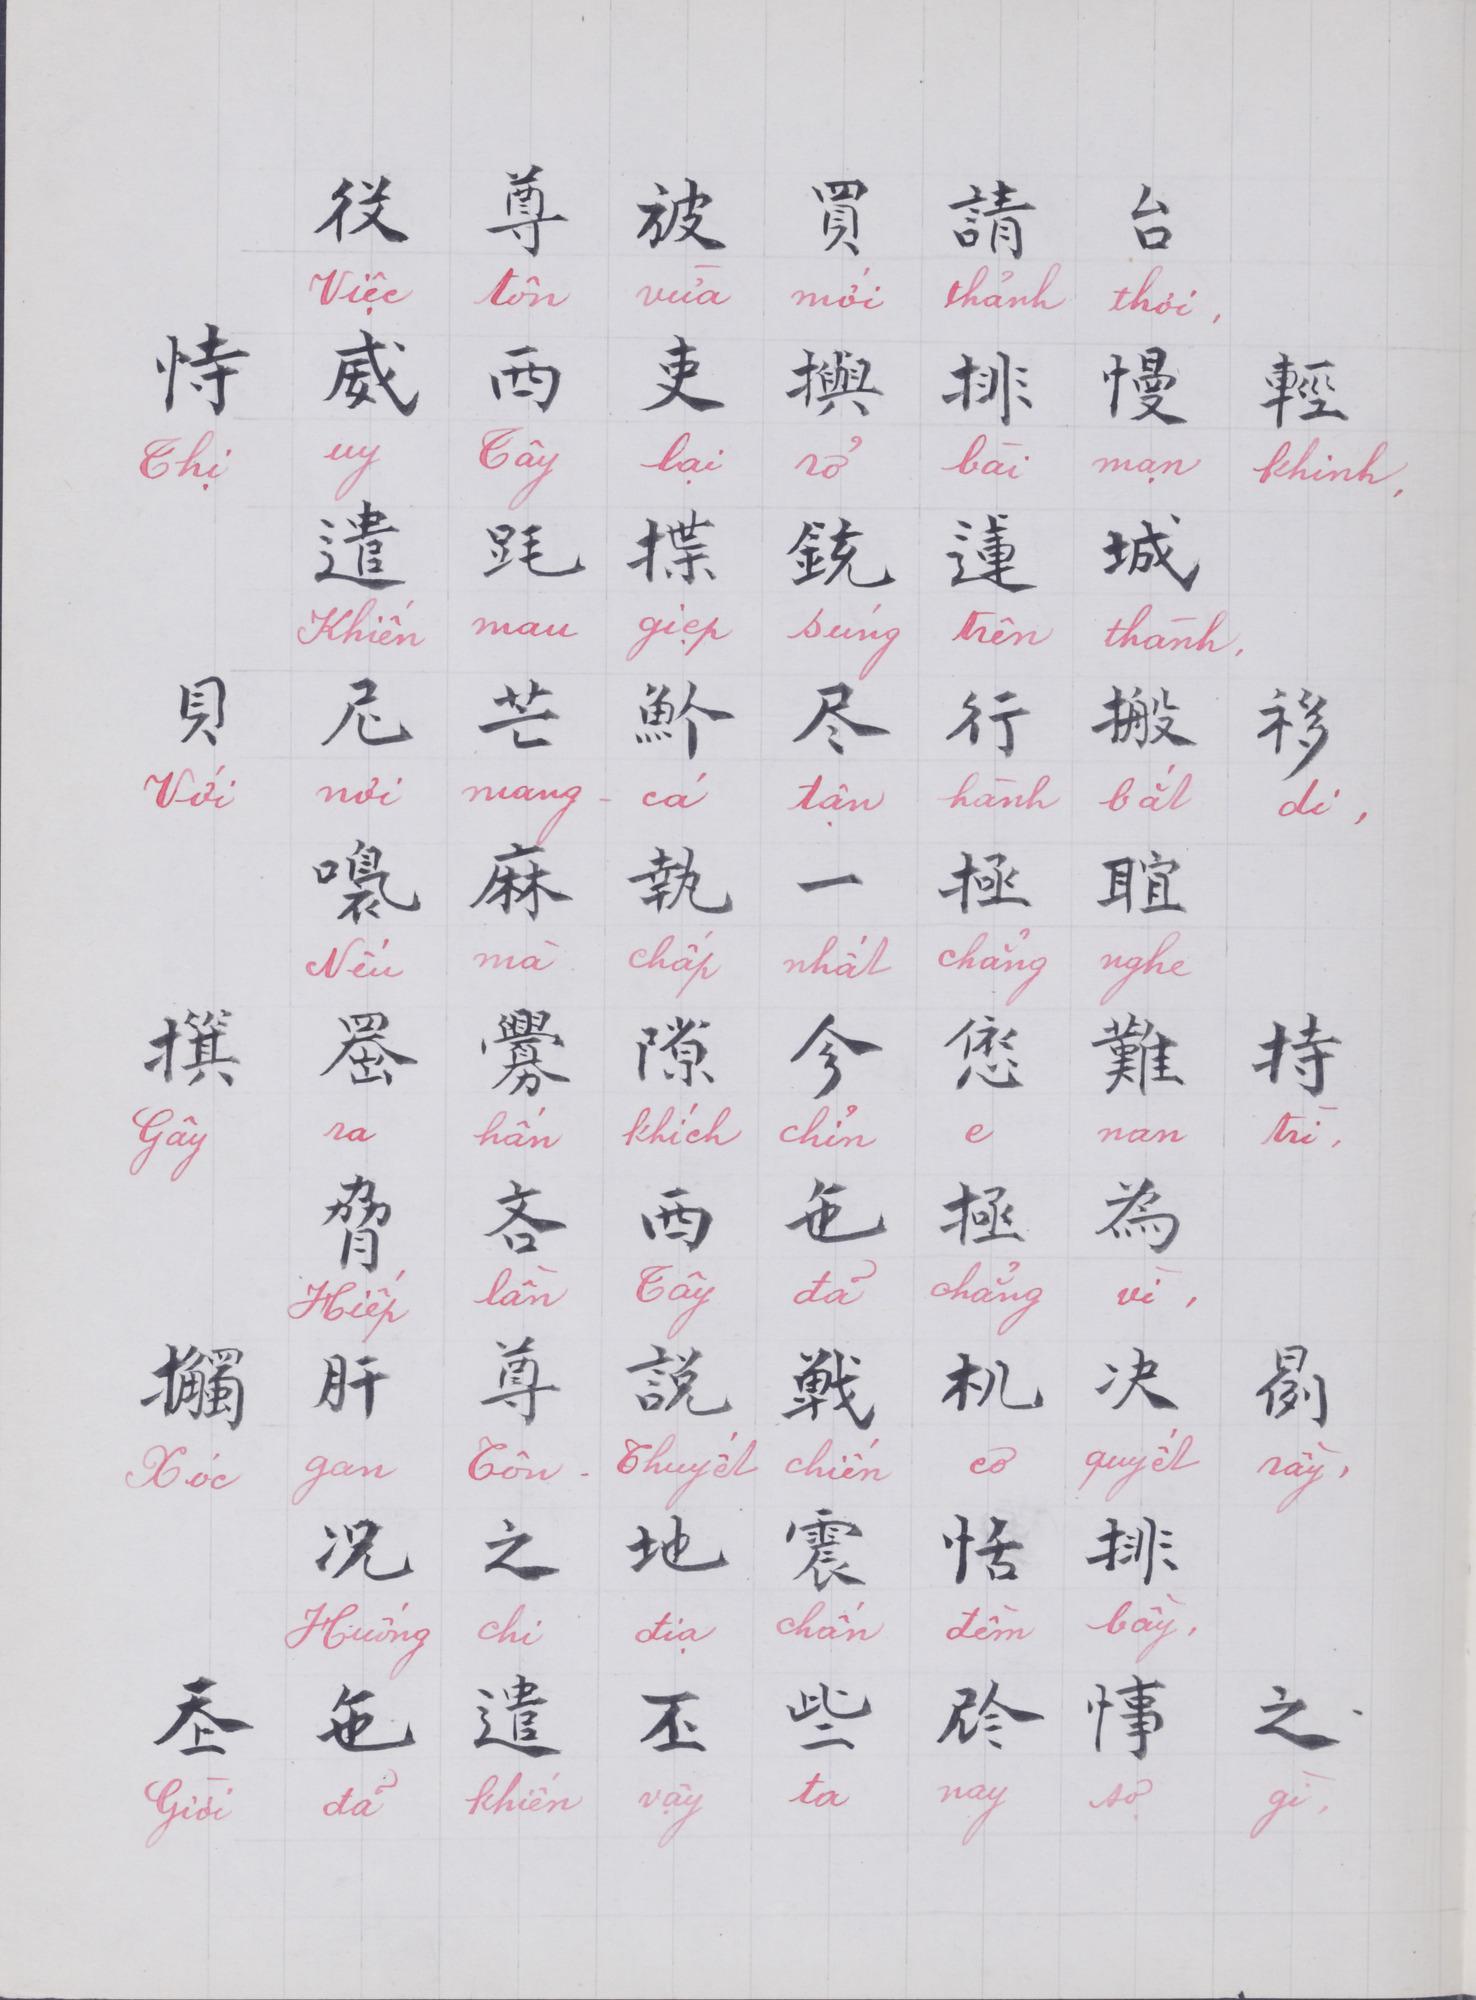 役 尊 被 買 請 台
Việc tôn vừa mới thảnh thơi,
恃 威 西 吏 擙 排 慢 輕
Thị uy Tây lại rở bài mạn khinh,
遣 𨁮 揲 銃 蓮 城
Khiến mau giẹp súng trên thành,
貝 尼 芒 魪 尽 行 搬 移
Với nơi mang-cá tận hành bắt di,
麻 執 一 極 聢
Nếu mà chấp nhất chẳng nghe
撰 𦋦 釁 隙 㐱 偬 難 持
Gây ra hấn khích chỉn e nan trì,
脅 吝 西 㐌 極 為
Hiếp lần Tây đã chẳng vì,
擉 肝 尊 説 戰 机 决 𣇜
Xóc gan Tôn-Thuyết chiến cơ quyết rày,
况 之 地 震 恬 排
Huống chi địa chấn đềm bầy,
𡗶 㐌 遣 丕 些 𫢩 㤔 之
Giời đã khiến vậy ta nay sợ gì,